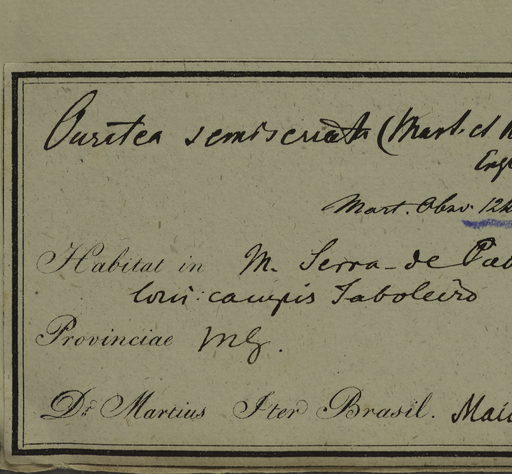 Ouratea semiserrata (Mart. et
Engl
Mart. Obsv. 12
Habitat in M. Serra de
campis Taboleiro
Provinciae MG.
Dr. Martius Iter Brasil. Mai